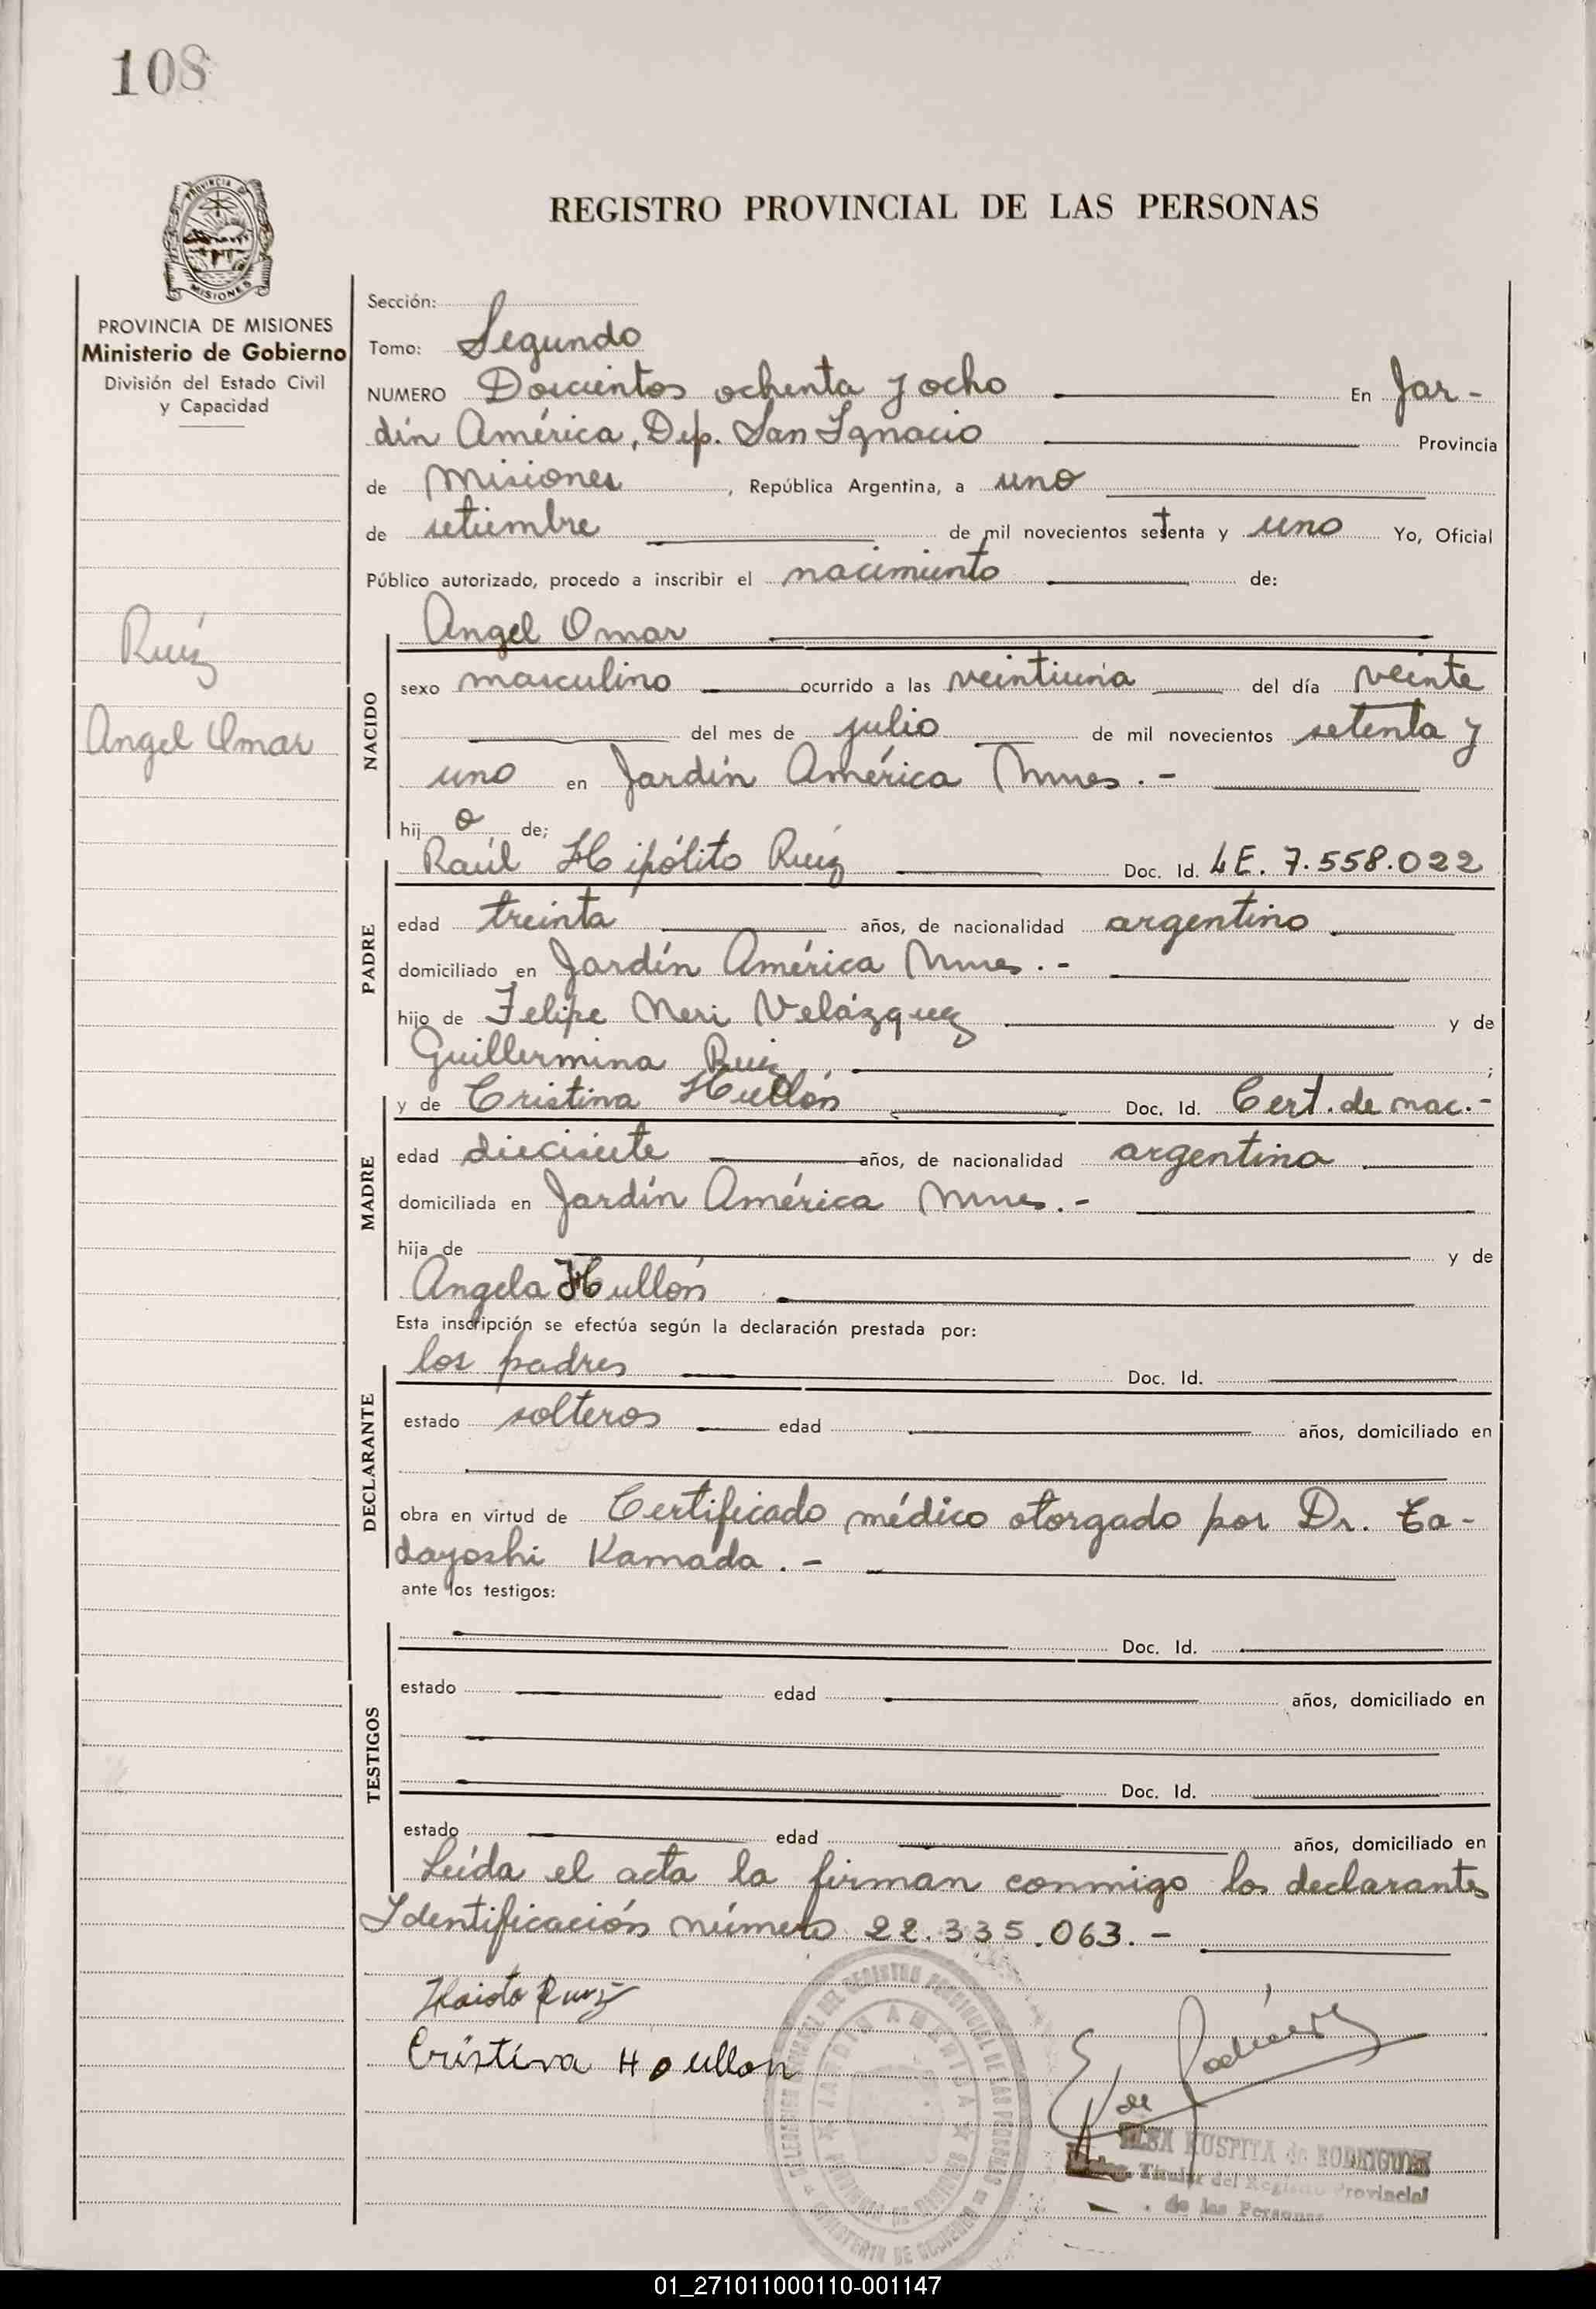 108
PROVINCIA DE
MISIONES
REGISTRO PROVINCIAL DE LAS PERSONAS
PROVINCIA DE MISIONES
Ministerio de Gobierno
División del Estado Civil
y Capacidad
Ruíz
Angel Omar
Sección:
Tomo: Segundo
NUMERO Doscientos ochenta y ocho En Jar-
dín América, Dep. San Ignacio Provincia
de Misiones, República Argentina, a uno
de setiembre de mil novecientos setenta y uno Yo, Oficial
Público autorizado, procedo a inscribir el nacimiento de:
NACIDO
Angel Omar
sexo masculino ocurrido a las veintiuna del día veinte
del mes de julio de mil novecientos setenta y
uno en Jardín América Mnes.-
hijo de;
PADRE
Raúl Hipólito Ruíz Doc. Id. LE. 7.558.022
edad treinta años, de nacionalidad argentino
domiciliado en Jardín América Mnes.-
hijo de Felipe Neri Velázquez y de
Guillermina Ruiz ;
MADRE
y de Cristina Hullón Doc. Id. Cert. de nac.-
edad diecisiete años, de nacionalidad argentina
domiciliada en Jardín América Mnes.-
hija de y de
Angela Hullón
Esta inscripción se efectúa según la declaración prestada por:
DECLARANTE
los padres Doc. Id.
estado solteros edad años, domiciliado en
obra en virtud de Certificado médico otorgado por Dr. Ta-
dayoshi Kamada.-
ante los testigos:
TESTIGOS
Doc. Id.
estado edad años, domiciliado en
Doc. Id.
estado edad años, domiciliado en
Leída el acta la firman conmigo los declarantes
Identificación número 22.335.063.-
Ruiz
Cristina Houllon
JARDIN AMERICA
PROVINCIA DE MISIONES
MINISTERIO DE GOBIERNO
RUSPITA de RODRIGUEZ
Titular del Registro Provincial
de las Personas
01_271011000110-001147